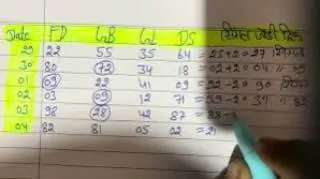 Date FD GB GL DS सिंगल जोड़ी ट्रिक
29 22 55 35 64 = 25+2027 सिंगल
30 80 72 34 18 = 02+2004
01 09 22 41 09 = 22-2090 सिंगल
02 03 09 12 71 = 39-2037
03 98 28 42 87 = 28-
04 82 81 05 02 = 21